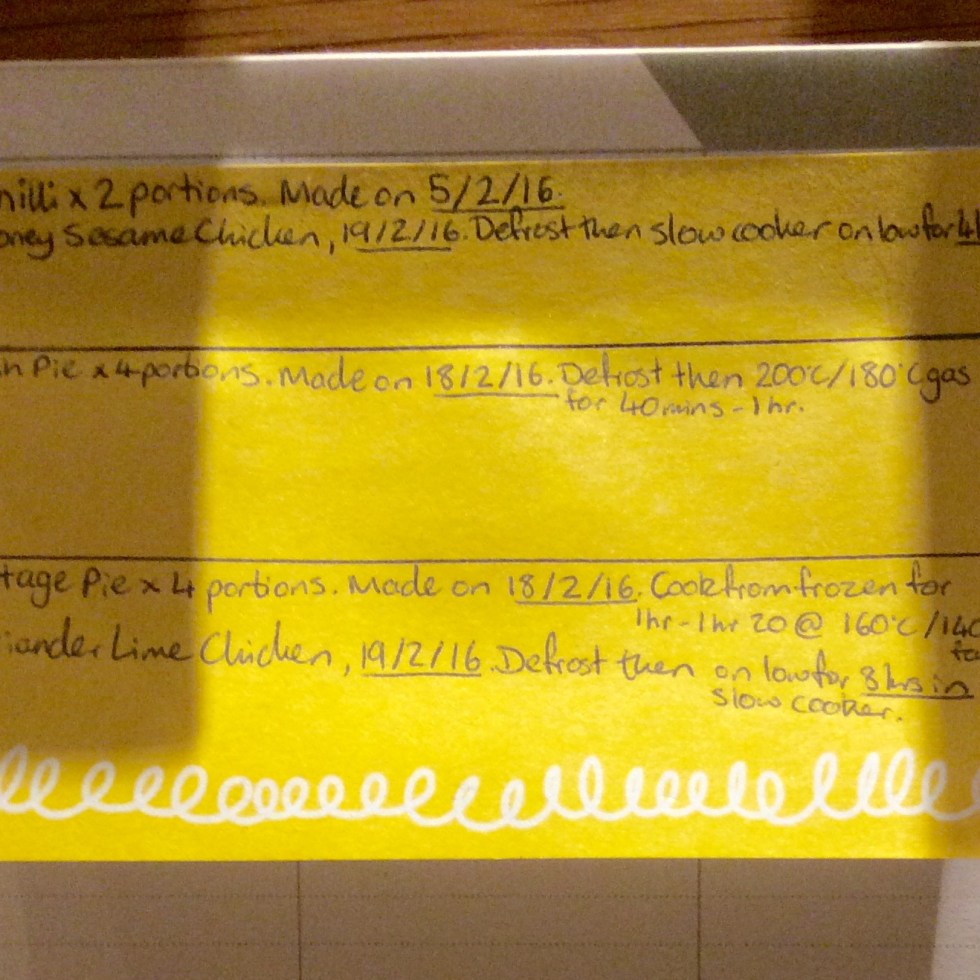 nilli x 2 portions. Made on 5/2/16.
oney Sesame Chicken, 19/2/16. Defrost then slow cooker on low for 4
h Pie x 4 portions. Made on 18/2/16. Defrost then 200°C/180°C gas
for 40mins - 1hr.
tage Pie x 4 portions. Made on 18/2/16. Cook from frozen for
1hr - 1hr 20 @ 160°C/140
fa
iander Lime Chicken, 19/2/16. Defrost then on low for 8hrs in
slow cooker.